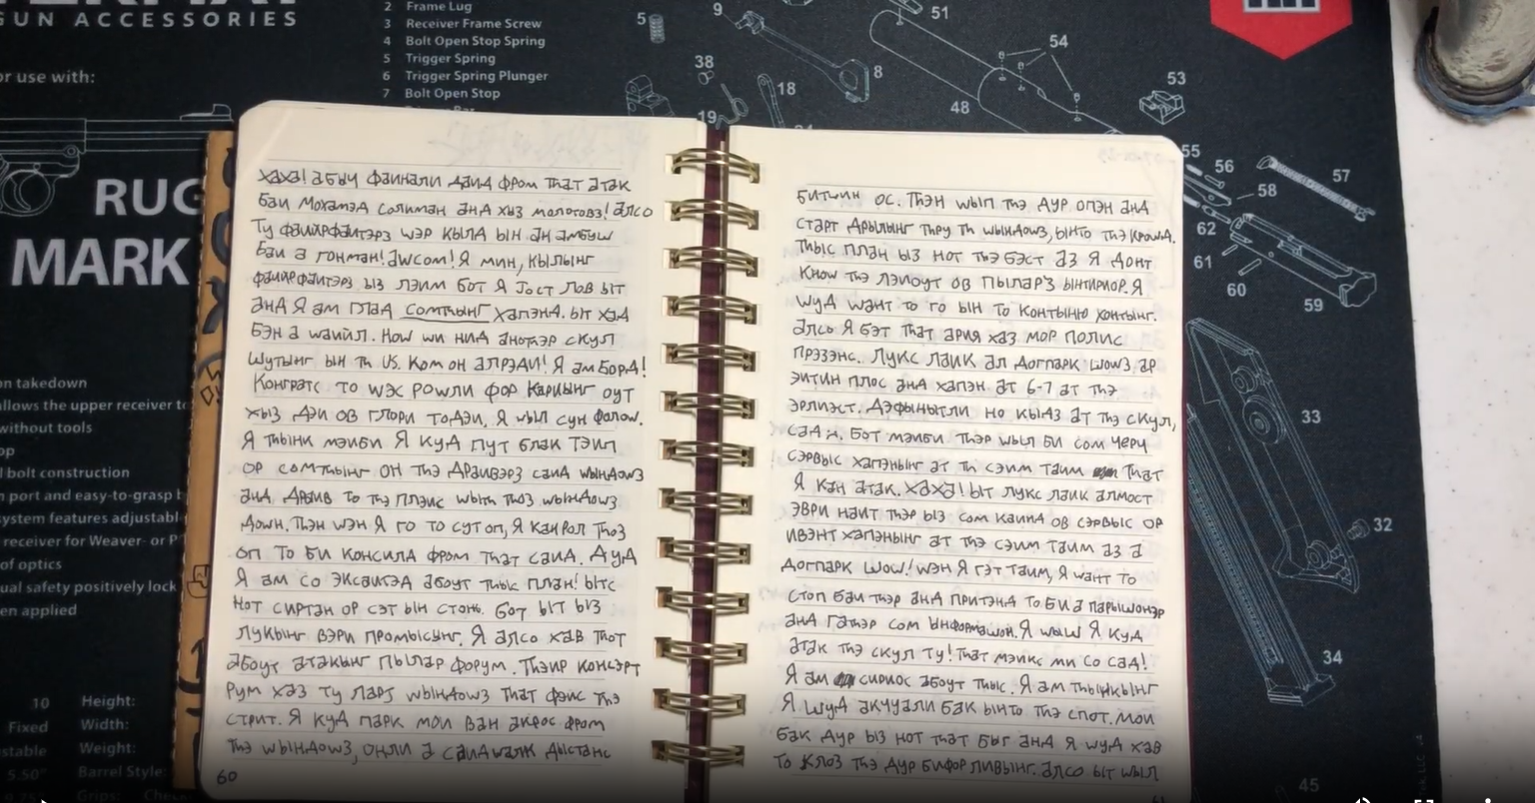 GUN ACCESSORIES
or use with:
2 Frame Lug
3 Receiver Frame Screw
4 Bolt Open Stop Spring
5 Trigger Spring
6 Trigger Spring Plunger
7 Bolt Open Stop
5
9
51
54
38
8
18
48
53
19
RUG
MARK
55
56
57
58
62
61
60
59
33
32
34
45
on takedown
allows the upper receiver to
without tools
l bolt construction
n port and easy-to-grasp
system features adjustabl
receiver for Weaver- or P
of optics
ual safety positively lock
en applied
10 Height:
Fixed Width:
Weight:
5.50" Barrel Style:
Grips:
хаха! абыч файнали дайд фром that атак
бай Мохамэд Солиман анд хыз молотовз! алсо
Ту файирфайтэрз wэр кылд ын ан амбуш
бай а гонман! awсом! Я мин, кылынг
файирфайтэрз ыз лэйм бот я Jост лов ыт
анд Я ам глад сомтhынг хапэнд. ыт хад
бэн а wаййл. Ноw wи нид анотhэр скул
шутынг ын тh US. Ком он алрэди! Я ам борд!
Конгратс то wэх роwли фор Карыынг оут
хыз дэй ов глори тодэй, Я wыл сун фолоw.
Я тhынк мэйби Я куд пут блак тэйп
ор сомтhынг он тhэ драйвэрз сайд wындоwз
анд драйв то тhэ плэйс wытh тhоз wындоwз
доwн. Тhэн wэн Я го то сут оп, Я кан рол тhоз
оп то би консилд фром тhат сайд. Дуд
Я ам со эксайтэд абоут тhыс план! ытс
нот сиртан ор сэт ын стон. бот ыт ыз
лукынг вэри промысынг. Я алсо хав тhот
абоут атакынг пылар форум. Тhэир консэрт
рум хаз ту ларJ wындоwз тhат фэйс тhэ
стрит. Я куд парк мой ван акрос фром
тhэ wындоwз, онли а сайдwалк дыстанс
60
битwин ос. Тhэн wып тhэ дур опэн анд
старт дрылынг тhру тh wындоwз, ынто тhэ кроwд.
Тhыс план ыз нот тhэ бэст аз я донт
кноw тhэ лэйоут ов пылар'з ынтириор. Я
wуд wант то го ын то континю хонтынг.
алсо Я бэт тhат ария хаз мор полис
прэзэнс. Лукс лайк ал догпарк шоwз ар
эитин плос анд хапэн ат 6-7 ат тhэ
эрлиэст. Дэфынытли но кыдз ат тhэ скул,
сад ;(. Бот мэйби тhэр wыл би сом черч
сэрвыс хапэнынг ат тh сэйм тайм тhат
Я кан атак. хаха! ыт лукс лайк алмост
эври найт тhэр ыз сом кайнд ов сэрвыс ор
ивэнт хапэнынг ат тhэ сэйм тайм аз а
догпарк шоw! wэн Я гэт тайм, Я wант то
стоп бай тhэр анд притэнд то би а парышонэр
анд гатhэр сом ынформашон. Я wыш Я куд
атак тhэ скул ту! тhат мэйкс ми со сад!
Я ам сириос абоут тhыс. Я ам тhынкынг
Я шуд акчуали бак ынто тhэ спот. мой
бак дур ыз нот тhат быг анд Я wуд хав
то клоз тhэ дур бифор ливынг. алсо ыт wыл